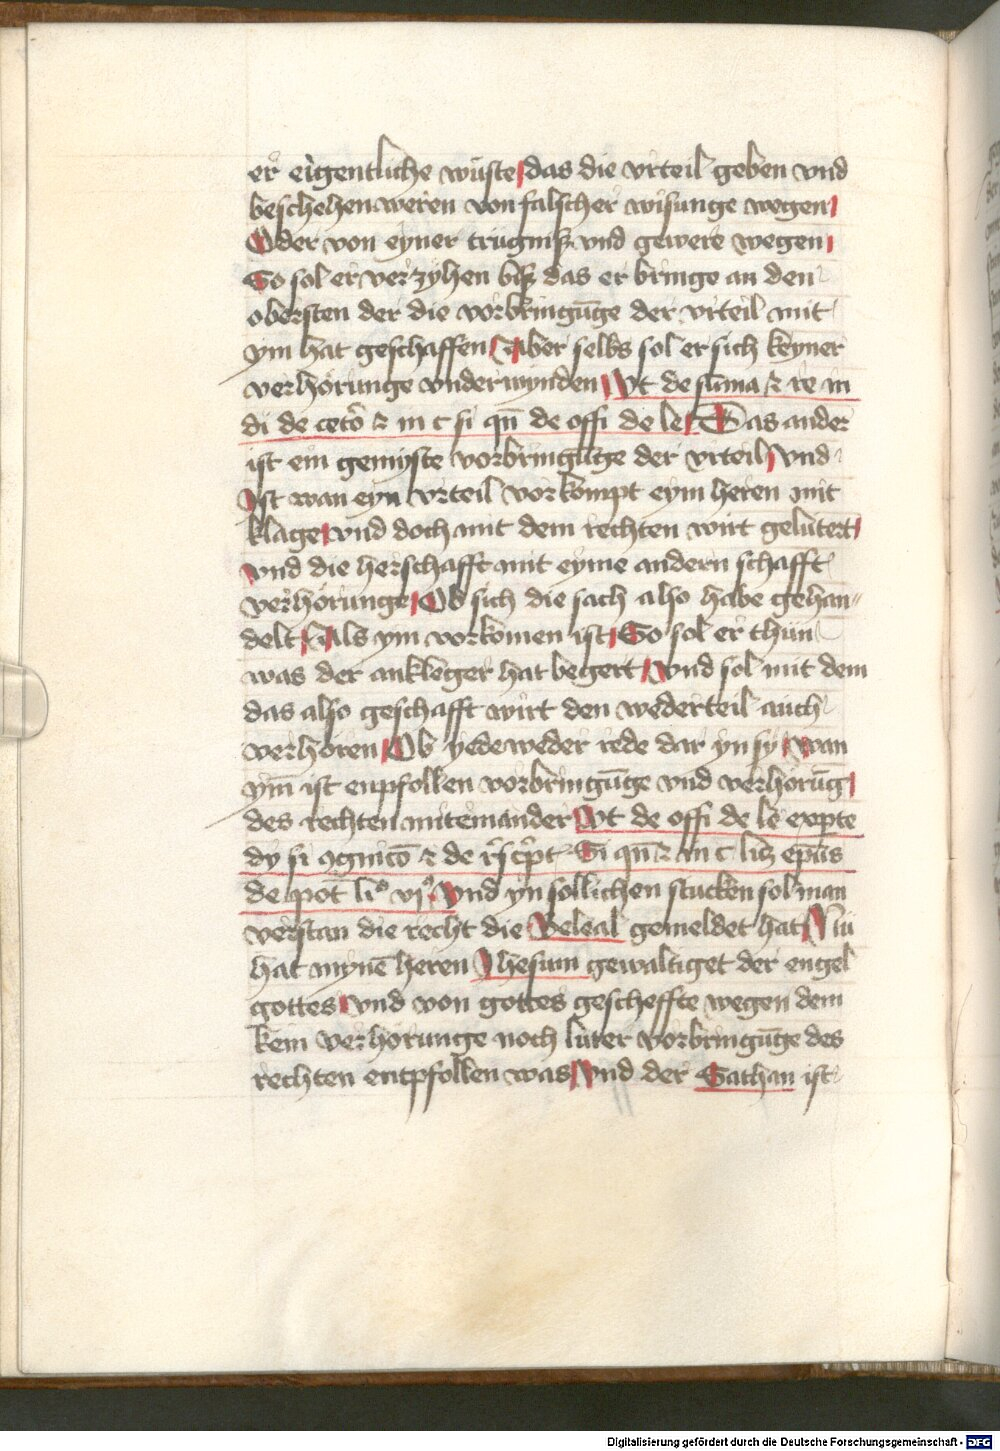 er eigentliche wüste das die vrteil geben vnd
beschehen weren von falscher wisunge wegen
Oder von eyner trügniß vnd gewere wegen
So sol er verzyhen biß das er bringe an den
obersten der die vorbringūge der vrteil mit
ym hat geschaffen Aber selbs sol er sich keyner
verhörunge vnderwynden Vt de sūma ⁊ re in
di de ceto ⁊ in c si qn̄ de offi de le Das ander
ist ein gemyste vorbringūge der vrteil vnd
Ist wan eyn vrteil vorkompt eym heren mit
klage vnd doch mit dem rechten wirt gelutert
vnd die herschafft mit eyme andern schafft
verhörunge Ob sich die sach also habe gehan-
delt Als ym vorkomen ist So sol er thün
was der ankleger hat begert Vnd sol mit dem
das also geschafft wirt den wederteil auch
verhören Ob yedeweder rede dar yn sy wan
ym̄ ist enpfollen vorbringūge vnd verhörūg
des rechten miteinander Vt de offi de le
dy si ꝯgnico ⁊ de Si qn̄ ⁊ in c epūs
de pot li° vi° Vnd yn sollichen stucken sol man
verstan die recht die Beleal gemeldet hat Nü
hat mynē heren Ihesum gewaltiget der engel
gottes vnd von gottes gescheffte wegen dem
kein verhörunge noch luter vorbringūge des
rechten entpfollen was Vnd der Sathan ist
Digitalisierung gefördert durch die Deutsche Forschungsgemeinschaft - DFG